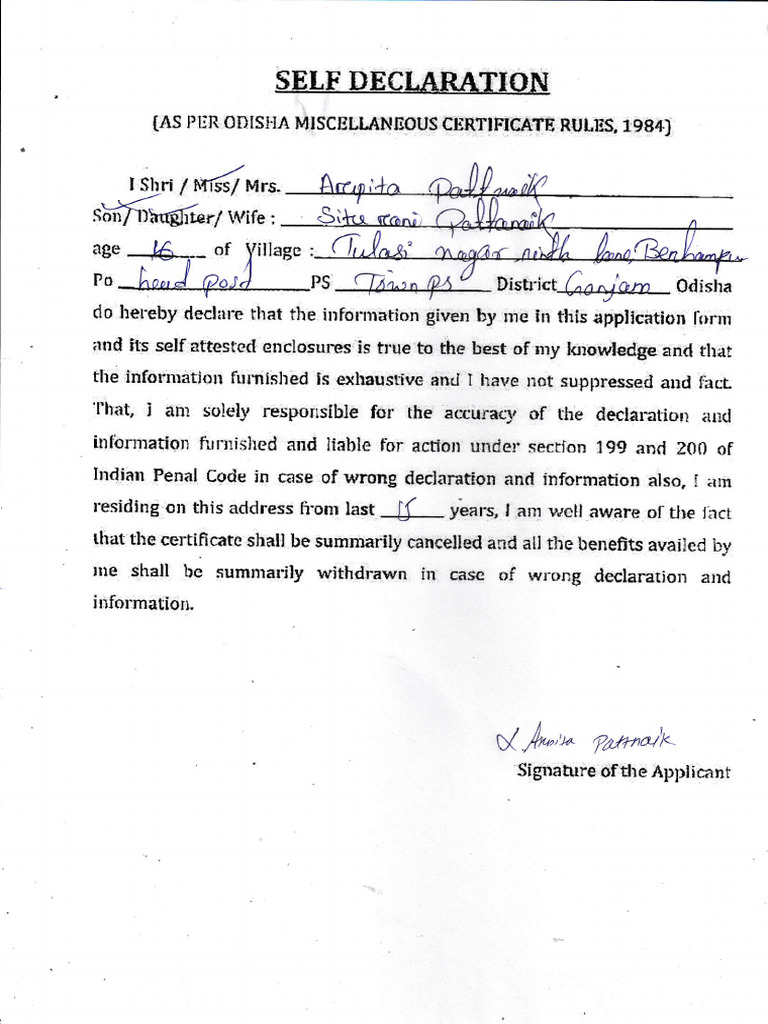 SELF DECLARATION
(AS PER ODISHA MISCELLANEOUS CERTIFICATE RULES, 1984)
I Shri / Miss/ Mrs. Arpita Pattnaik
Son/ Daughter/ Wife : Situ rani Pattanaik
age 16 of Village : Tulasi nagar ninth lane, Berhampur
Po head post PS Town ps District Ganjam Odisha
do hereby declare that the information given by me in this application form
and its self attested enclosures is true to the best of my knowledge and that
the information furnished is exhaustive and I have not suppressed and fact.
That, I am solely responsible for the accuracy of the declaration and
information furnished and liable for action under section 199 and 200 of
Indian Penal Code in case of wrong declaration and information also, I am
residing on this address from last 15 years, I am well aware of the fact
that the certificate shall be summarily cancelled and all the benefits availed by
me shall be summarily withdrawn in case of wrong declaration and
information.
Arpita Pattnaik
Signature of the Applicant